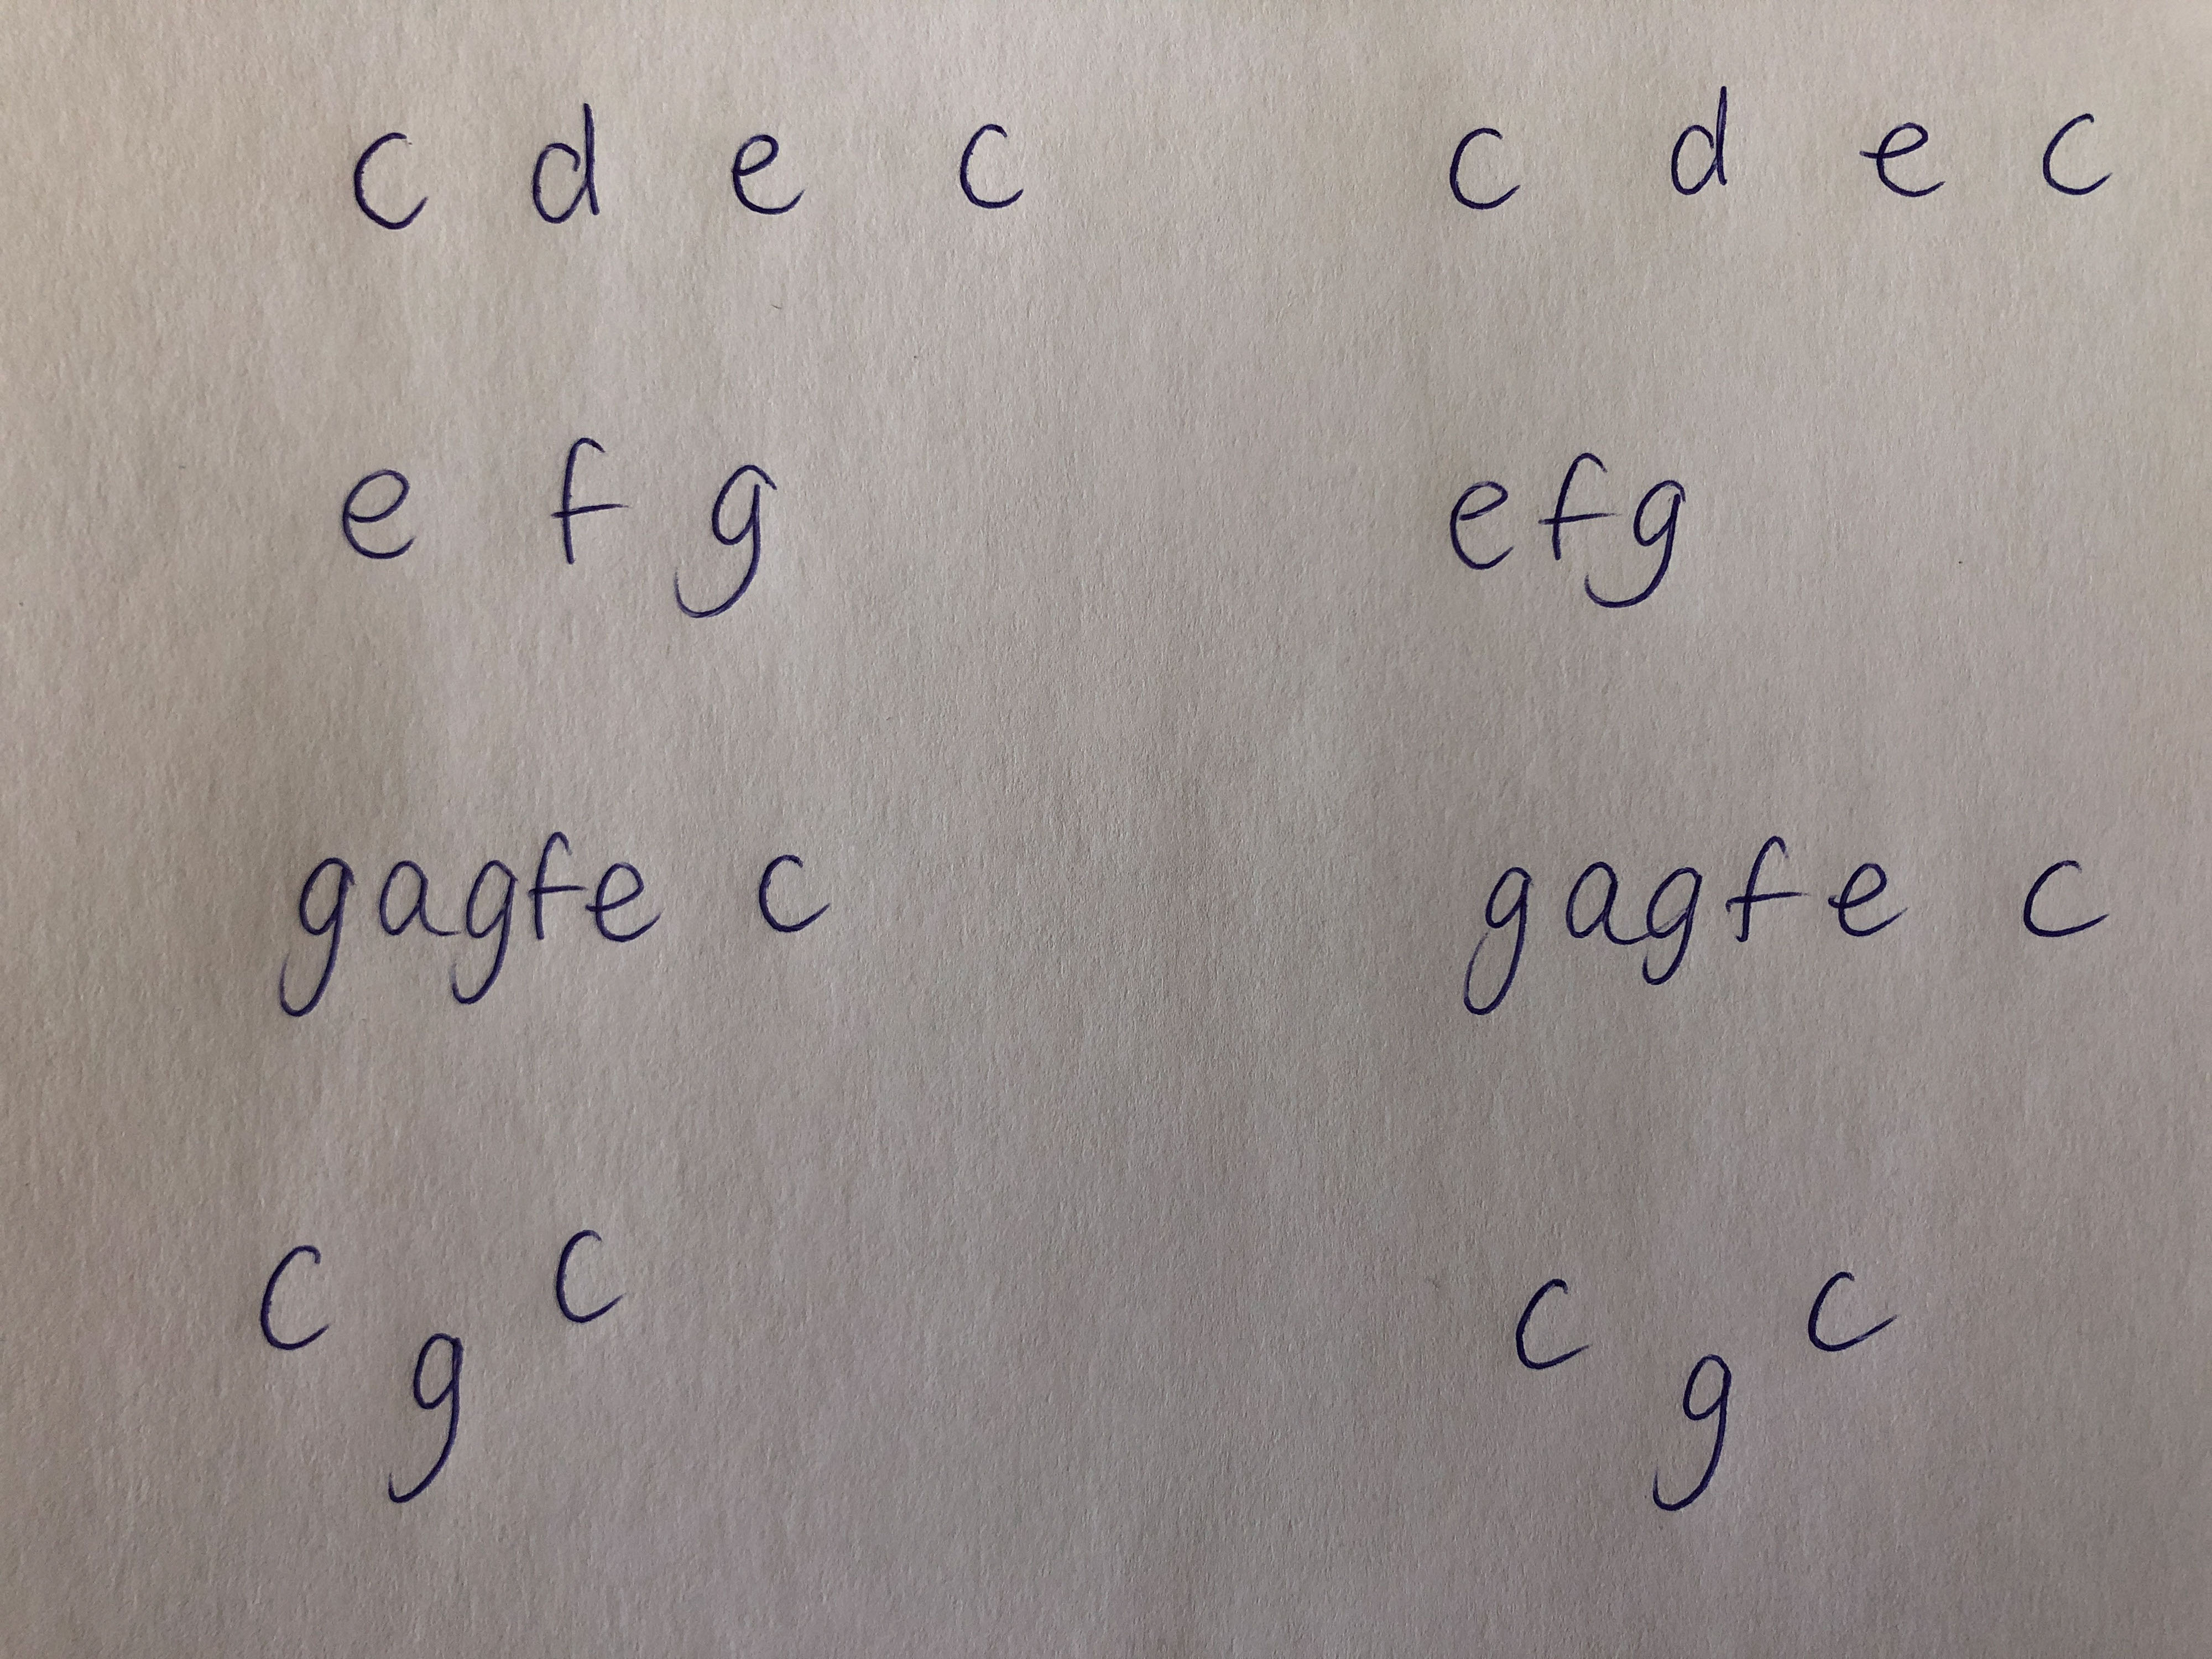 c d e c c d e c
e f g efg
gagfe c gagfe c
c g c c g c